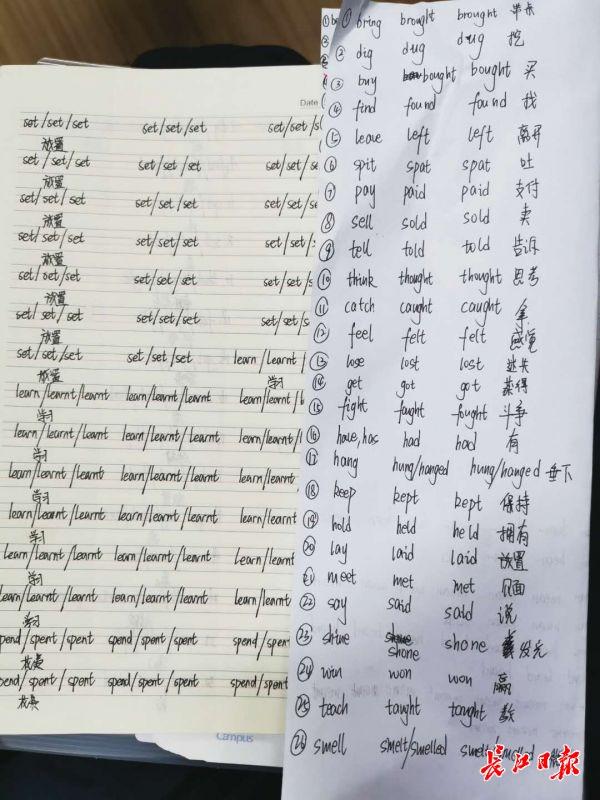 Date
set/set/set set/set/set set/set/s
放置
set/set/set set/set/set set/set/
放置
set/set/set set/set/set set/set/
放置
set/set/set set/set/set set/set/
放置
set/set/set set/set/set set/set/s
放置
set/set/set set/set/set set/set/
放置
set/set/set set/set/set learn/learnt/
放置 学习
learn/learnt/learnt learn/learnt/learnt learn/learnt/
学习
learn/learnt/learnt learn/learnt/learnt learn/learnt/
学习
learn/learnt/learnt learn/learnt/learnt learn/learnt/
学习
learn/learnt/learnt learn/learnt/learnt learn/learnt
学习
learn/learnt/learnt learn/learnt/learnt learn/learnt
学习
learn/learnt/learnt learn/learnt/learnt learn/learnt
学习
spend/spent/spent spend/spent/spent spend/spent
花费
spend/spent/spent spend/spent/spent spend/spent
花费
Campus
① bring brought brought 带来
② dig dug dug 挖
③ buy bought bought 买
④ find found found 找
⑤ leave left left 离开
⑥ spit spat spat 吐
⑦ pay paid paid 支付
⑧ sell sold sold 卖
⑨ tell told told 告诉
⑩ think thought thought 思考
⑪ catch caught caught 拿
⑫ feel felt felt 感觉
⑬ lose lost lost 迷失
⑭ get got got 获得
⑮ fight fought fought 斗争
⑯ have,has had had 有
⑰ hang hung/hanged hung/hanged 垂下
⑱ keep kept kept 保持
⑲ hold held held 拥有
⑳ lay laid laid 放置
㉑ meet met met 见面
㉒ say said said 说
㉓ shine shone shone 发光
㉔ win won won 赢
㉕ teach taught taught 教
㉖ smell smelt/smelled smelt/smelled
长江日报